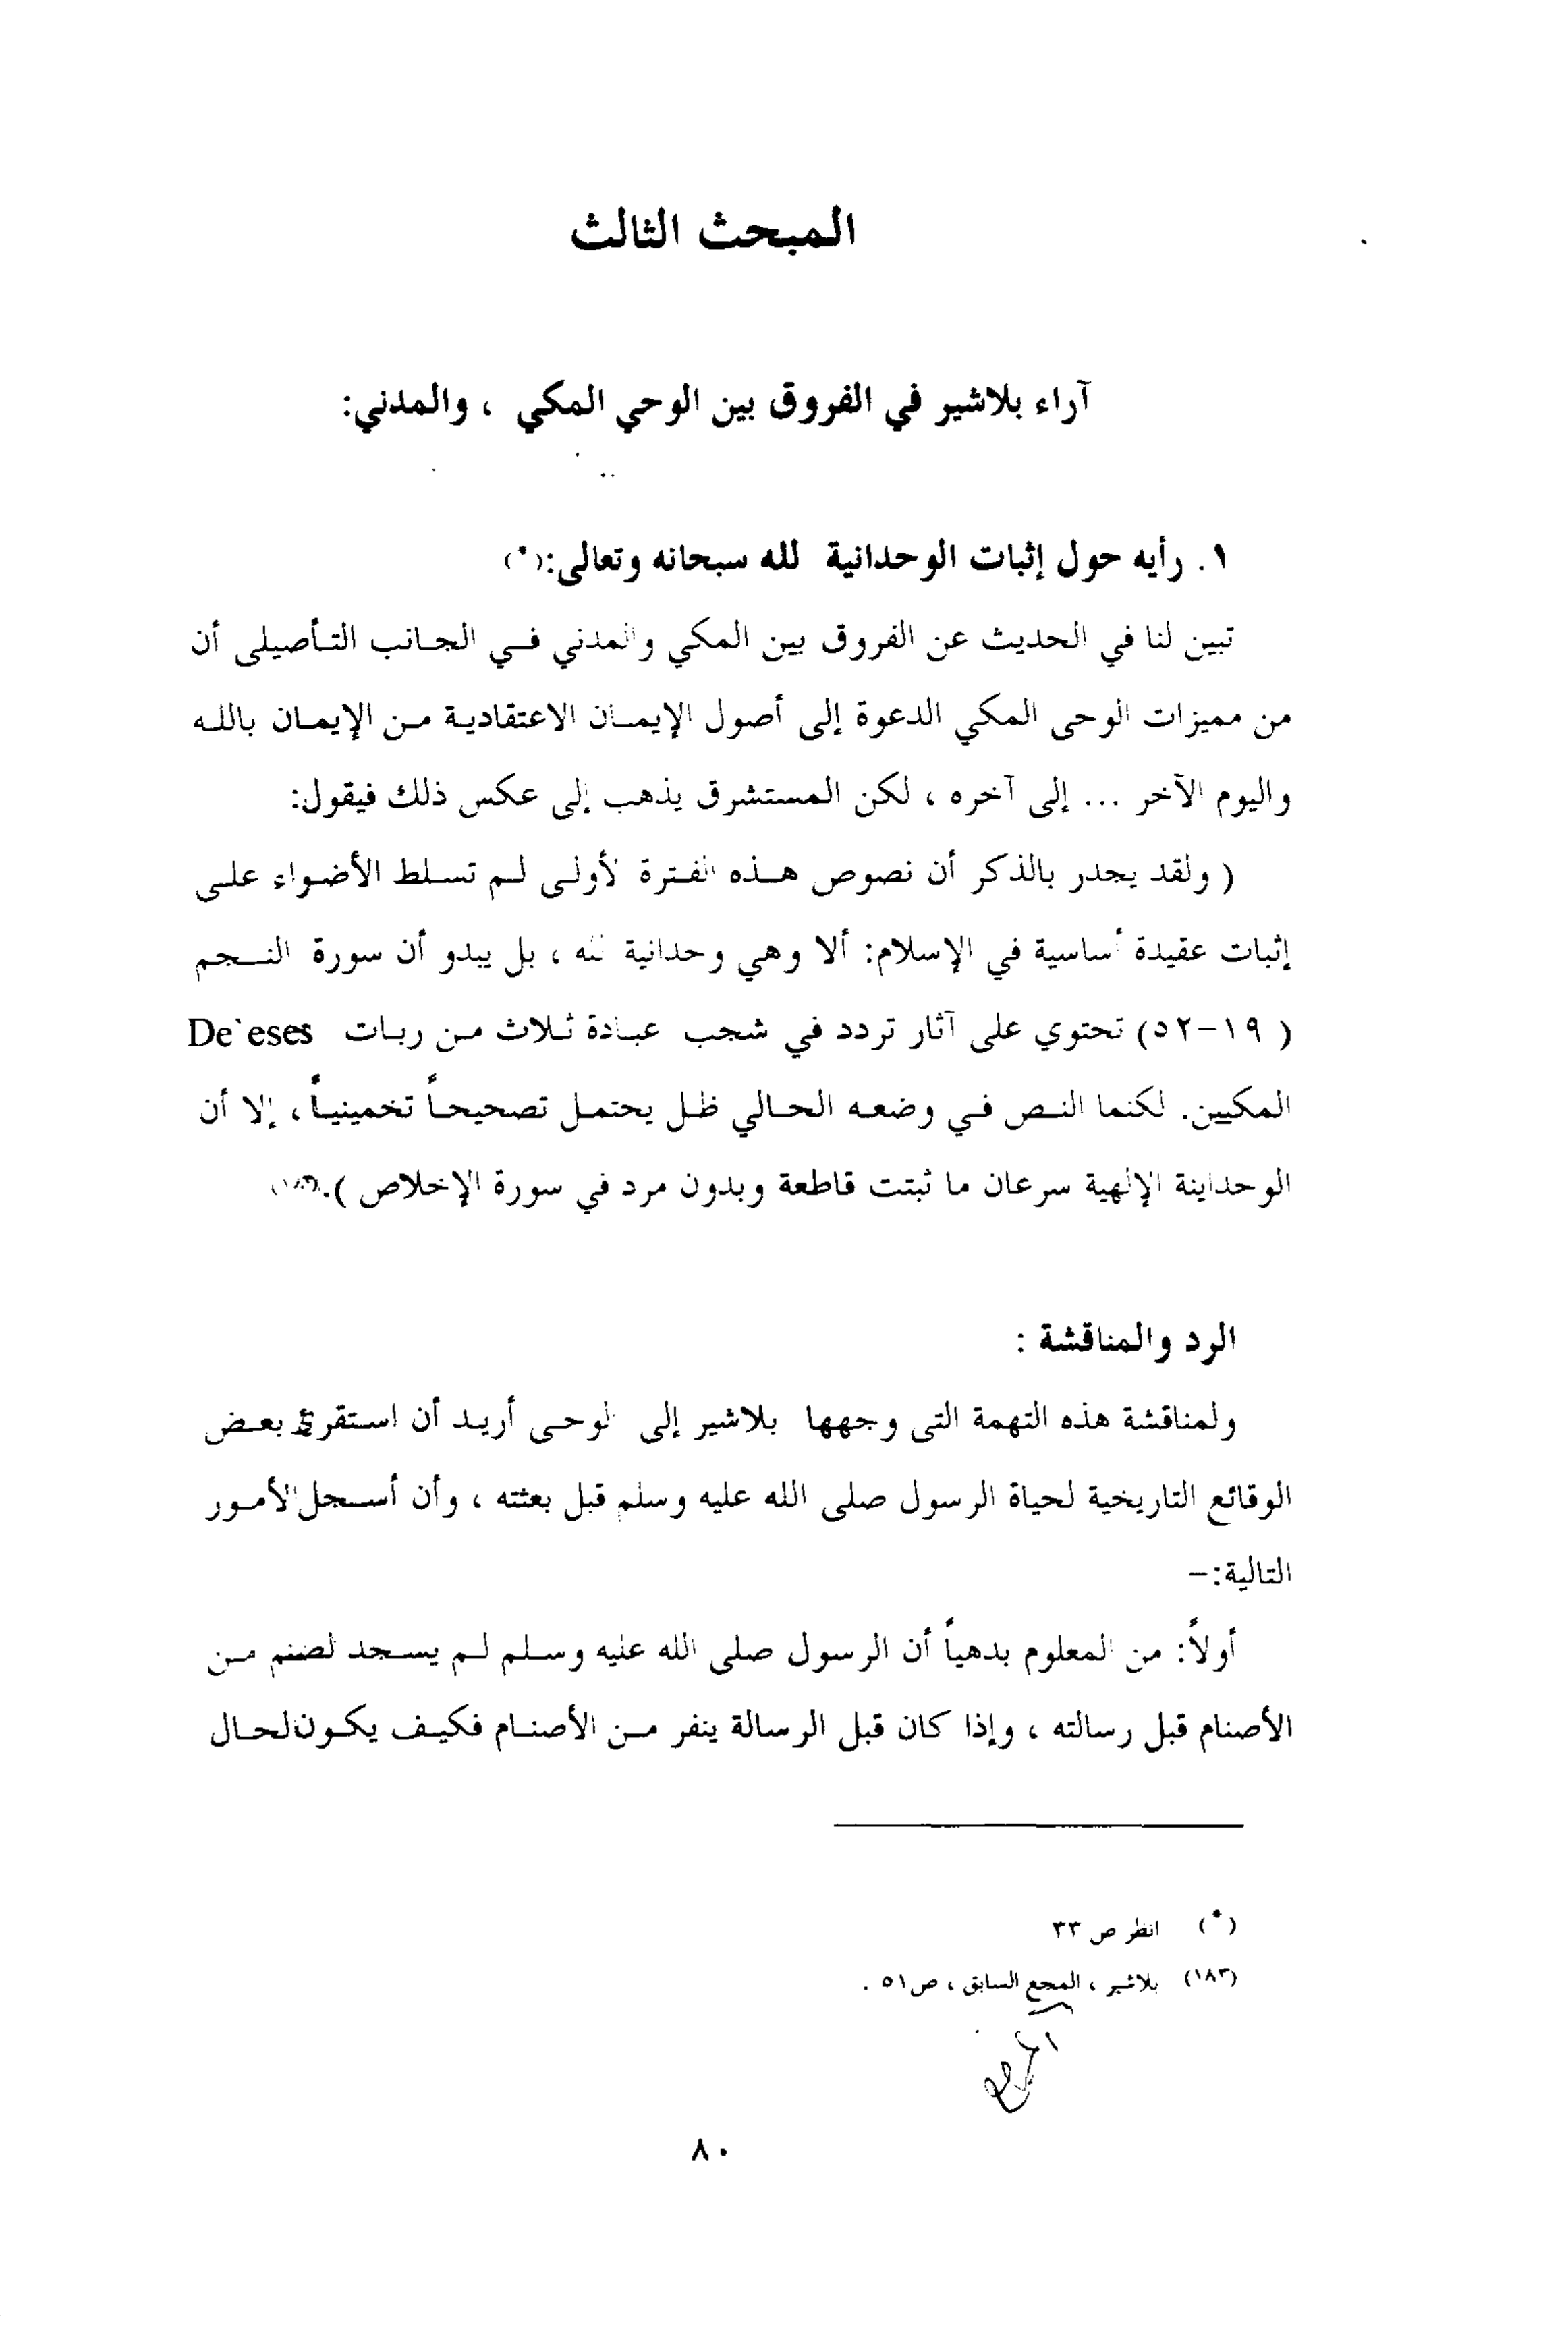 المبحث الثالث
آراء بلاشير في الفروق بين الوحي المكي ، والمدني:
١. رأيه حول إثبات الوحدانية لله سبحانه وتعالى:(*)
تبين لنا في الحديث عن الفروق بين المكي والمدني في الجانب التأصيلى أن
من مميزات الوحى المكي الدعوة إلى أصول الإيمان الاعتقادية من الإيمان بالله
واليوم الآخر ... إلى آخره ، لكن المستشرق يذهب إلى عكس ذلك فيقول:
( ولقد يجدر بالذكر أن نصوص هذه الفترة الأولى لم تسلط الأضواء على
إثبات عقيدة أساسية في الإسلام: ألا وهي وحدانية لله ، بل يبدو أن سورة النجم
( ١٩-٥٢) تحتوي على آثار تردد في شجب عبادة ثلاث من ربات De`eses
المكيين. لكنما النص في وضعه الحالي ظل يحتمل تصحيحاً تخمينياً ، إلا أن
الوحداينة الإلهية سرعان ما ثبتت قاطعة وبدون مرد في سورة الإخلاص ).(١٨٣)
الرد والمناقشة :
ولمناقشة هذه التهمة التى وجهها بلاشير إلى الوحى أريد أن استقرئ بعض
الوقائع التاريخية لحياة الرسول صلى الله عليه وسلم قبل بعثته ، وأن أسجل الأمور
التالية:-
أولاً: من المعلوم بدهياً أن الرسول صلى الله عليه وسلم لم يسجد لصنم من
الأصنام قبل رسالته ، وإذا كان قبل الرسالة ينفر من الأصنام فكيف يكون لحال
(*) انظر ص ٣٣
(١٨٣) بلاشير ، المجع السابق ، ص٥١ .
المرجع
٨٠